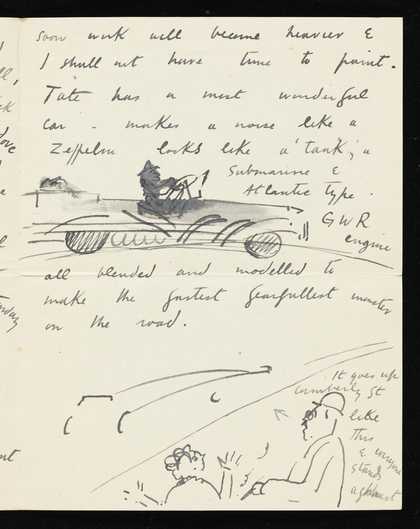 soon work will become heavier &
I shall not have time to paint.
Tate has a most wonderful
car - makes a noise like a
Zeppelin looks like a 'tank', a
submarine &
Atlantic type.
GWR
engine
all blended and modelled to
make the fastest fearfullest monster
on the road.
It goes up
St
like
this
&
stands
aghast